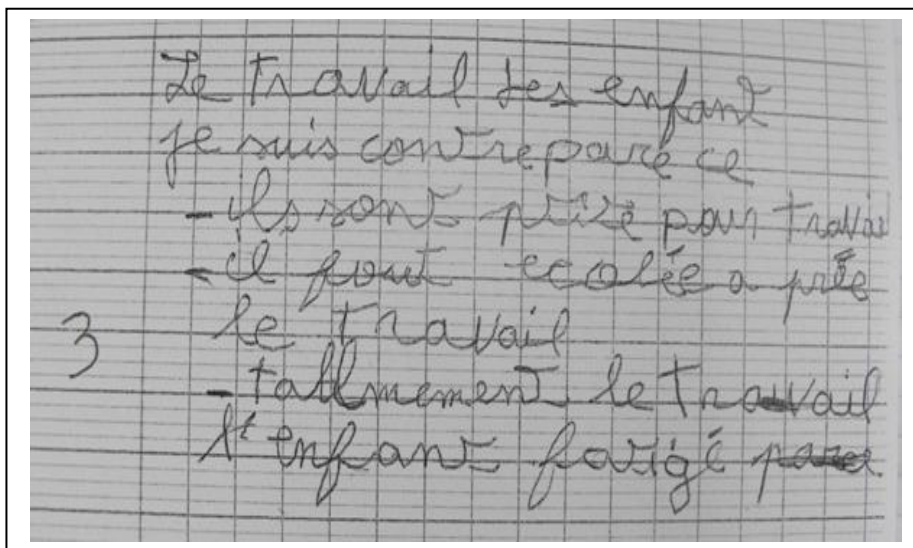 Le travail des enfant
je suis contrepare ce
- ils sont prizé pour travai
- il faut ecolée a prée
3
le travail
- tallmement le travail
l' enfant fatigé